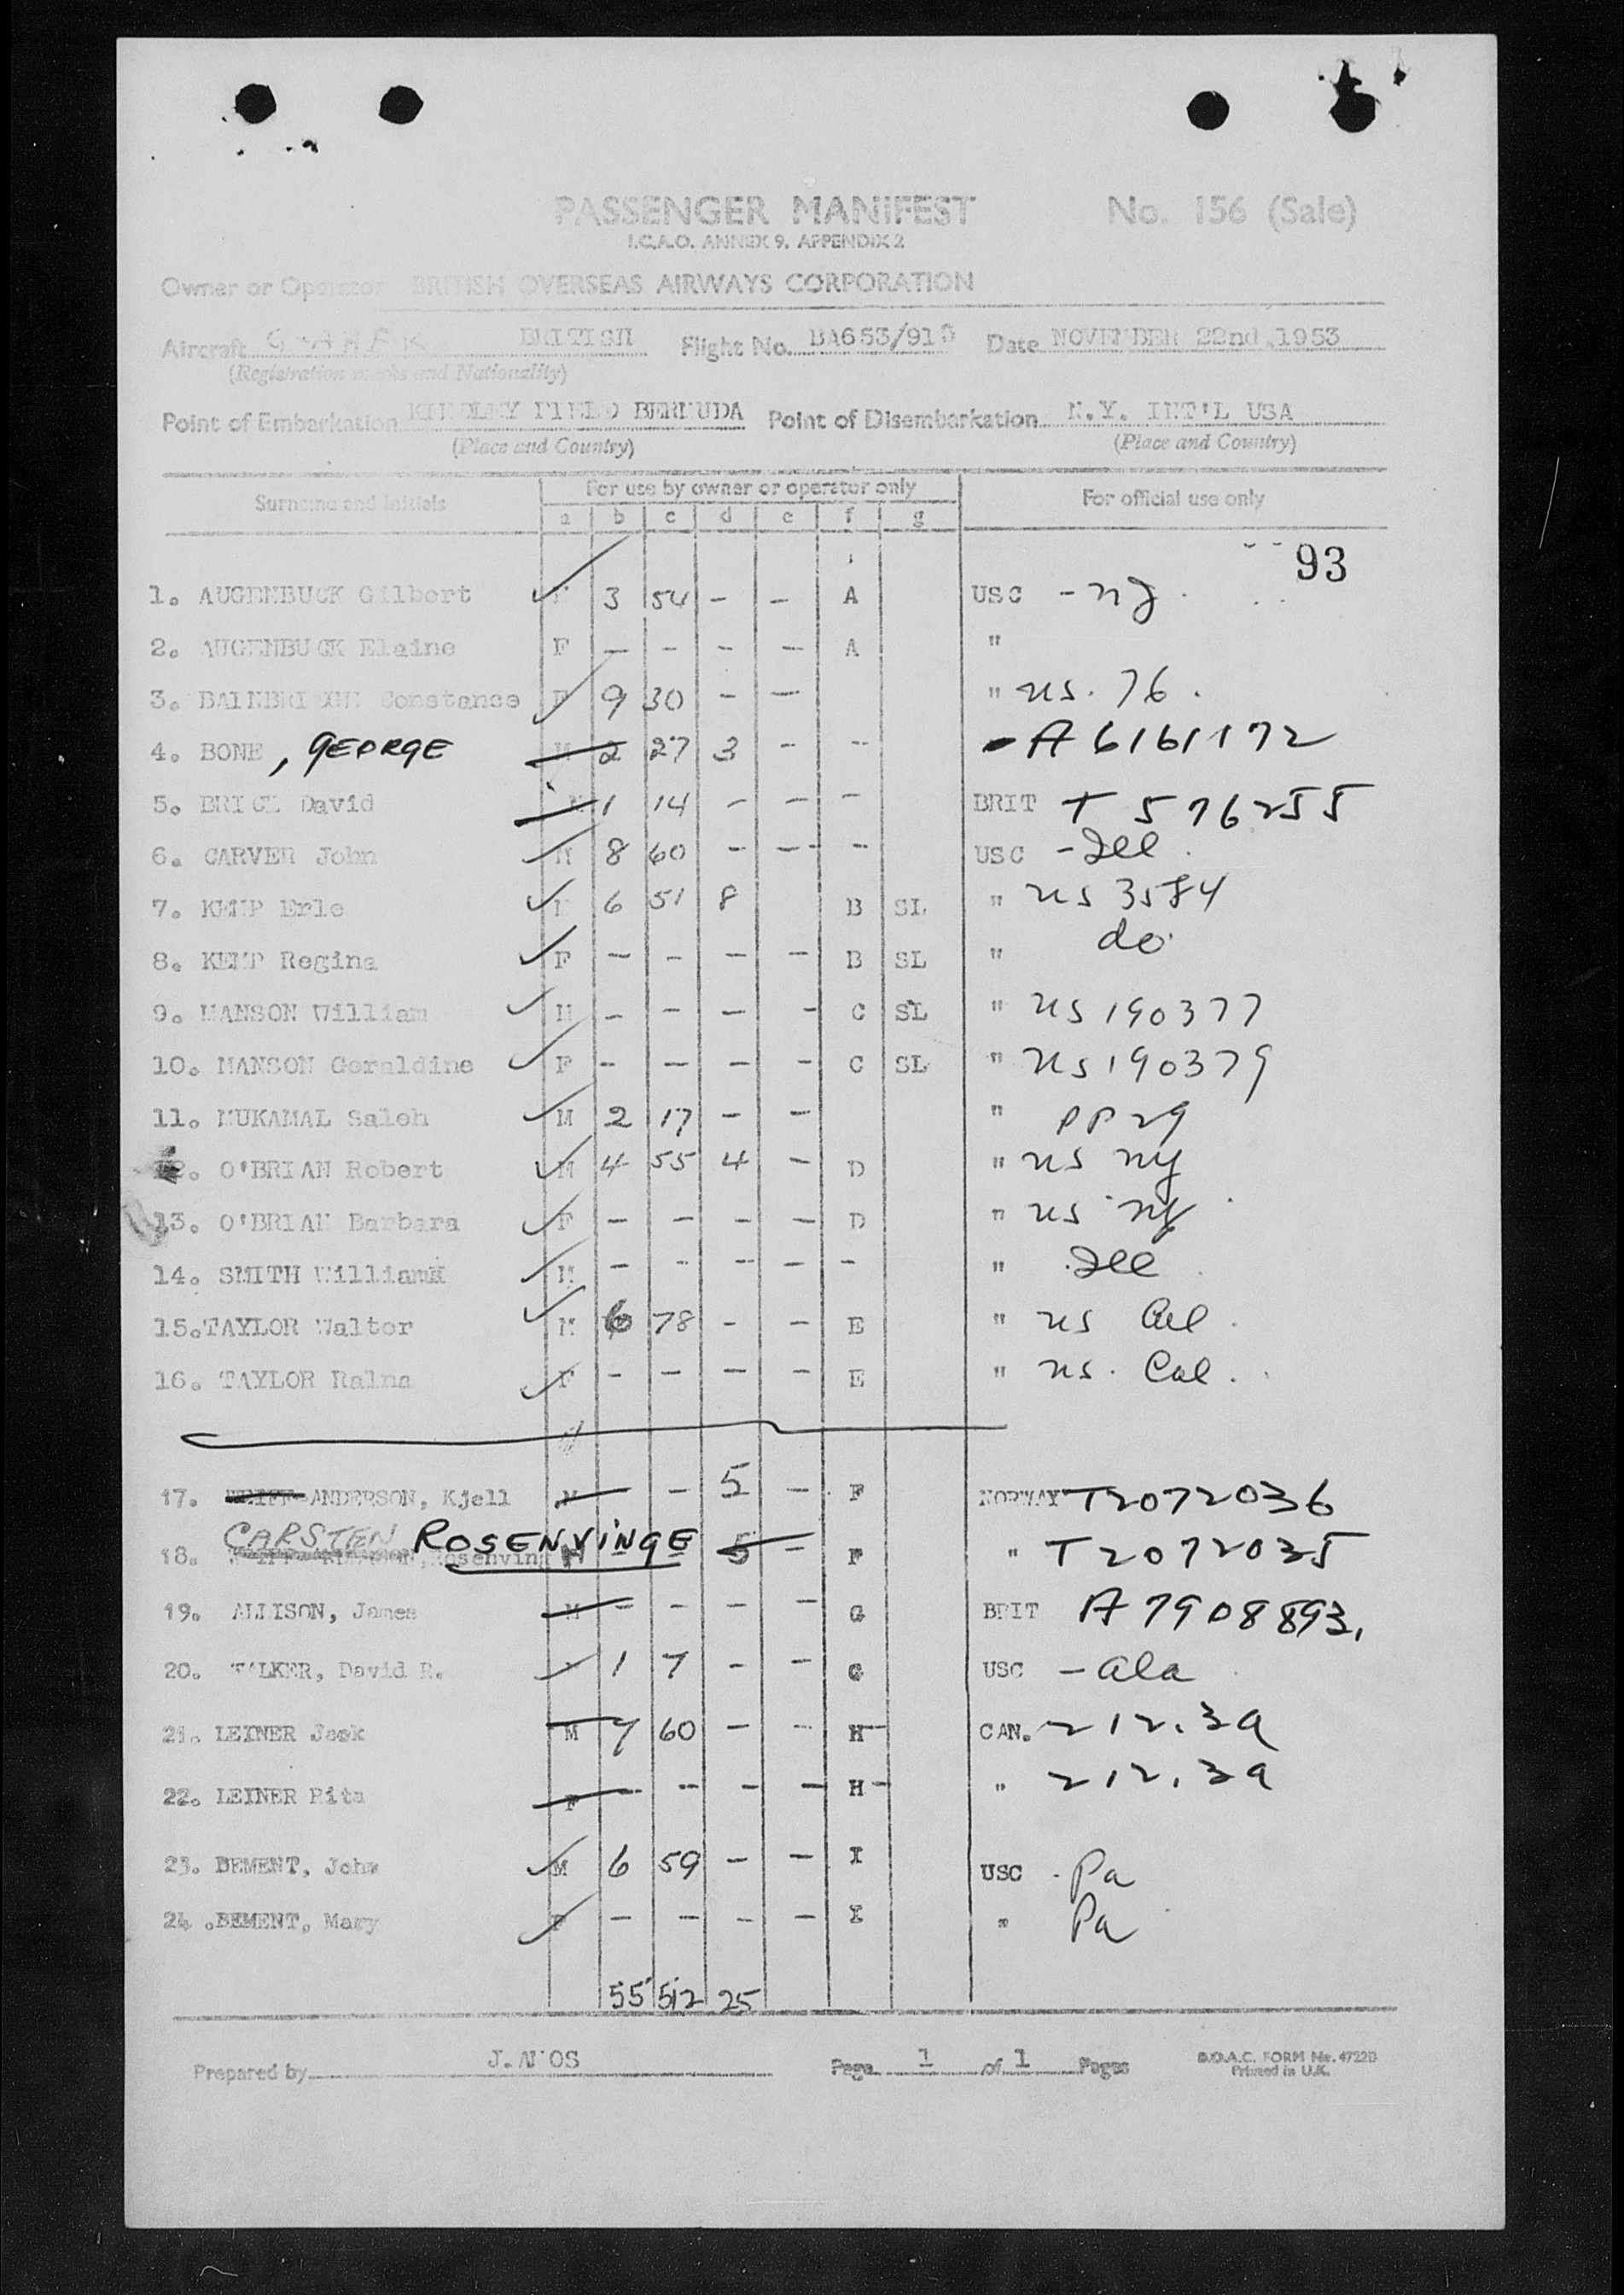 PASSENGER MANIFEST No. 156 (Sale)
I.C.A.O. ANNEX 9, APPENDIX 2
Owner or Operator BRITISH OVERSEAS AIRWAYS CORPORATION
Aircraft BRITISH Flight No. BA653/915 Date NOVEMBER 22nd, 1953
(Registration marks and Nationality)
Point of Embarkation KINDLEY FIELD BERMUDA Point of Disembarkation N.Y. INT'L USA
(Place and Country) (Place and Country)
Surname and Initials For use by owner or operator only For official use only
a b c d e f g
93
1. AUGENBUCK Gilbert 3 54 - - A USC - NJ.
2. AUGENBUCK Elaine F - - - - A "
3. BAINBRIDGE Constance F 9 30 - - " US. 76.
4. BONE, GEORGE M 2 27 3 - -- - A6161172
5. David M 1 14 - - - BRIT T 576255
6. CARVER John M 8 60 - - - USC - Ill.
7. KEMP Erle M 6 51 8 B SL " US 3584
8. KEMP Regina F - - - - B SL " do.
9. MANSON William M - - - - C SL " US 190377
10. MANSON Geraldine F - - - - C SL " US 190379
11. MUKAMAL Saleh M 2 17 - - " PP 29
12. O'BRIAN Robert M 4 55 4 - D " US NY
13. O'BRIAN Barbara F - - - - D " US NY
14. SMITH William M - - - - - " Ill
15. TAYLOR Walter M 6 78 - - E " US Cal.
16. TAYLOR Ralna F - - - - E " US. Cal.
17. ANDERSON, Kjell M - - 5 - F NORWAY T2072036
CARSTEN ROSENVINGE
18. Rosenving M - - 5 - F " T2072035
19. ALLISON, James M - - - - G BRIT A7908893.
20. WALKER, David R. 1 7 - - G USC - Ala
21. LEINER Jack M 7 60 - - H - CAN. 212.3a
22. LEINER Rita F - - - - H - " 212.3a
23. BEMENT, John M 6 59 - - I USC - Pa
24. BEMENT, Mary F - - - - I " Pa
55 512 25
Prepared by J. AMOS Page 1 of 1 Pages B.O.A.C. FORM No. 4722B
Printed in U.K.